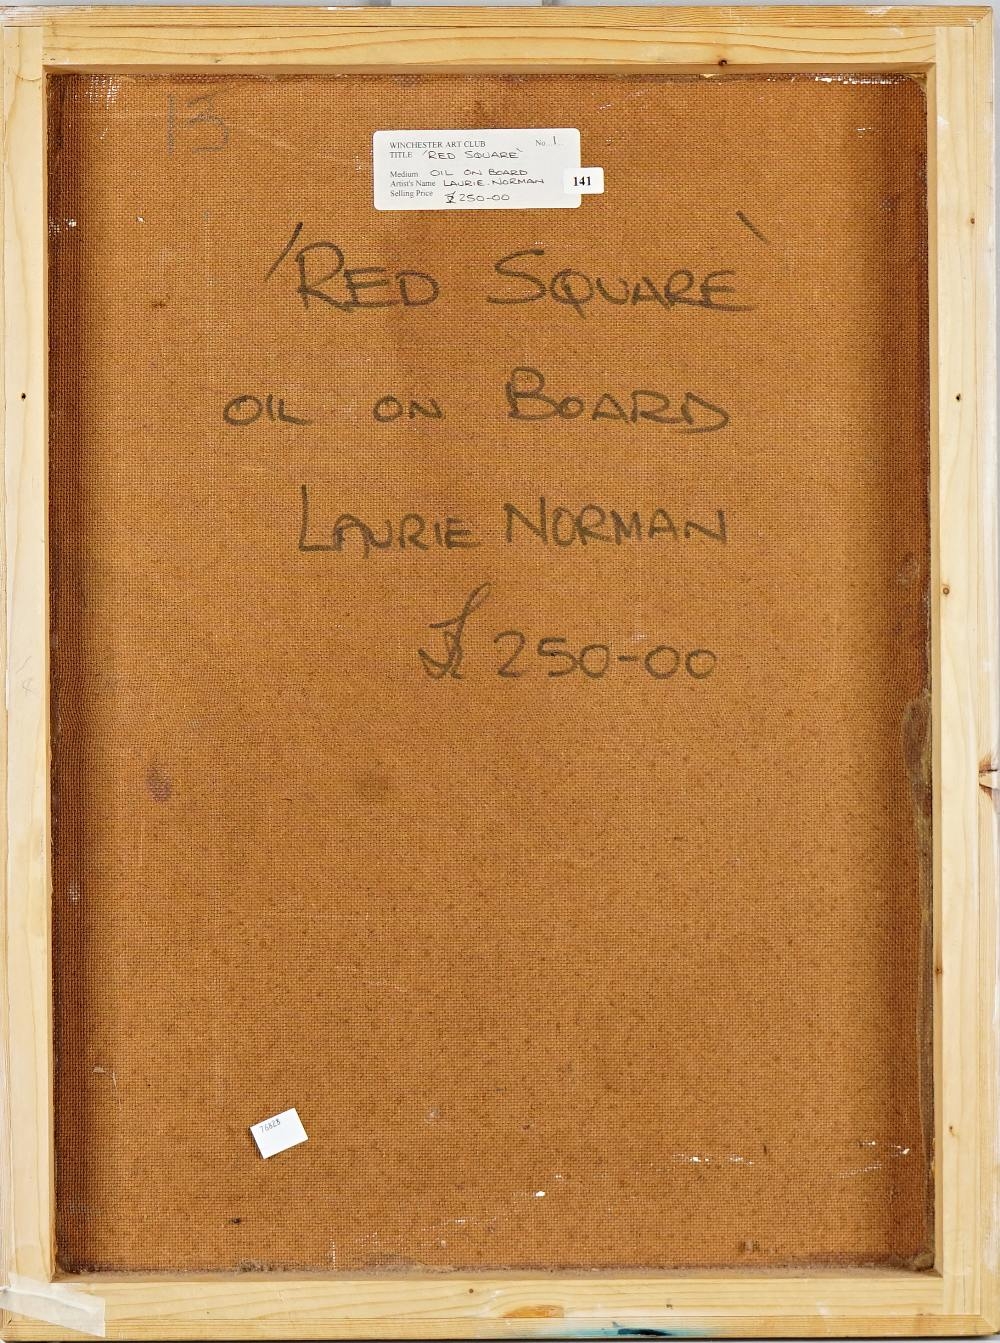 WINCHESTER ART CLUB No. 1
TITLE 'RED SQUARE'
Medium OIL ON BOARD
Artist's Name LAURIE NORMAN
Selling Price £250-00
141
'RED SQUARE'
OIL ON BOARD
LAURIE NORMAN
£250-00
76828